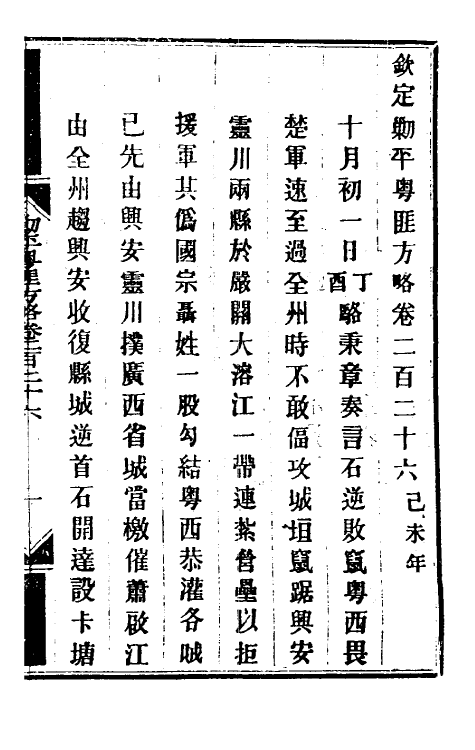 欽定勦平粵匪方略卷二百二十六己未年
十月初一日丁酉駱秉章奏言石逆敗竄粵西畏
楚軍速至過全州時不敢偪攻城垣竄踞興安
靈川兩縣於嚴關大溶江一帶連紮營壘以拒
援軍其僞國宗聶姓一股勾結粵西恭灌各城
已先由興安靈川撲廣西省城當檄催蕭啟江
由全州趨興安收復縣城逆首石開達設卡塘
勦平粵匪方略卷二百二十六
一